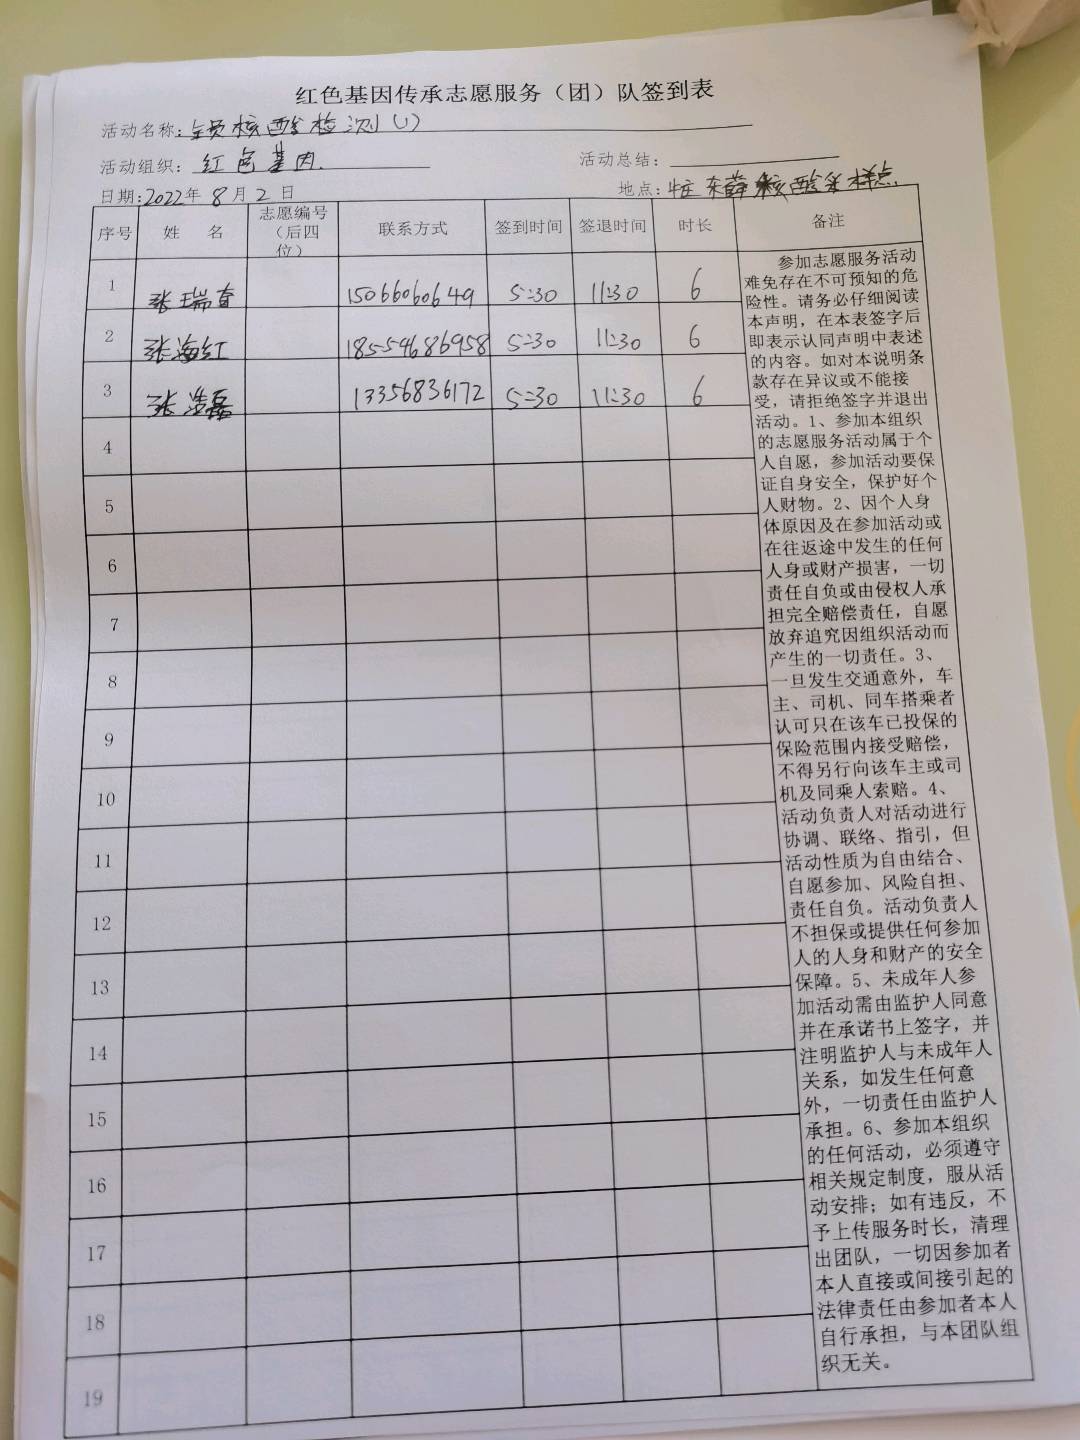 红色基因传承志愿服务（团）队签到表
活动名称：全员核酸检测(1)
活动组织：红色基因
活动总结：
日期：2022年8月2日
地点：东薛核酸采样点
序号 姓 名 志愿编号（后四位） 联系方式 签到时间 签退时间 时长 备注
1 张瑞 15066060649 5:30 11:30 6
2 张海红 18554686958 5:30 11:30 6
3 张浩磊 13356836172 5:30 11:30 6
4
5
6
7
8
9
10
11
12
13
14
15
16
17
18
19
参加志愿服务活动
难免存在不可预知的危
险性。请务必仔细阅读
本声明，在本表签字后
即表示认同声明中表述
的内容。如对本说明条
款存在异议或不能接
受，请拒绝签字并退出
活动。1、参加本组织
的志愿服务活动属于个
人自愿，参加活动要保
证自身安全，保护好个
人财物。2、因个人身
体原因及在参加活动或
在往返途中发生的任何
人身或财产损害，一切
责任自负或由侵权人承
担完全赔偿责任，自愿
放弃追究因组织活动而
产生的一切责任。3、
一旦发生交通意外，车
主、司机、同车搭乘者
认可只在该车已投保的
保险范围内接受赔偿，
不得另行向该车主或司
机及同乘人索赔。4、
活动负责人对活动进行
协调、联络、指引，但
活动性质为自由结合、
自愿参加、风险自担、
责任自负。活动负责人
不担保或提供任何参加
人的人身和财产的安全
保障。5、未成年人参
加活动需由监护人同意
并在承诺书上签字，并
注明监护人与未成年人
关系，如发生任何意
外，一切责任由监护人
承担。6、参加本组织
的任何活动，必须遵守
相关规定制度，服从活
动安排；如有违反，不
予上传服务时长，清理
出团队，一切因参加者
本人直接或间接引起的
法律责任由参加者本人
自行承担，与本团队组
织无关。